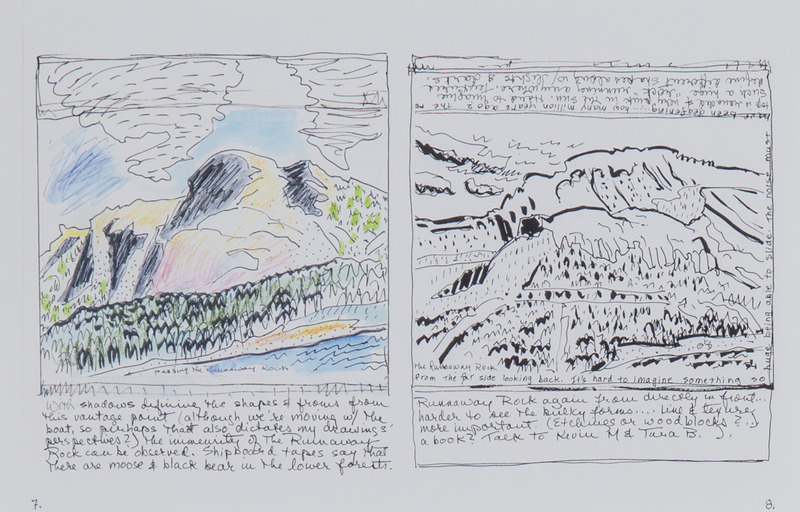 passing the Runaway Rock
With shadows defining the shapes & forms from
this vantage point (although we're moving w/ the
boat, so perhaps that also dictates my drawings'
perspectives?) the immensity of The Runaway
Rock can be observed. Shipboard tapes say that
there are moose & black bear in the lower forests.
7.
the Runaway Rock
From the far side looking back. It's hard to imagine something so
huge being able to slide. The noise must
have been deafening how many million years ago?
define different shapes about w/ lights & darks.
Runnaway Rock again from directly in front...
harder to see the bulky forms.... line & textures
more important. (Etchings or wood blocks?..)
a book? Talk to Kevin M & Tara B.
8.